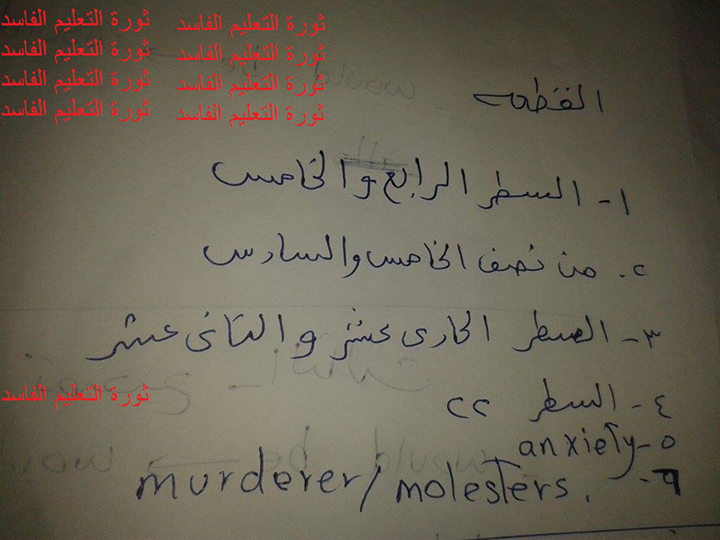 ثورة التعليم الفاسد ثورة التعليم الفاسد
ثورة التعليم الفاسد ثورة التعليم الفاسد
ثورة التعليم الفاسد ثورة التعليم الفاسد
ثورة التعليم الفاسد ثورة التعليم الفاسد
القطعه
١- السطر الرابع والخامس
٢. من نصف الخامس والسادس
٣- السطر الحادى عشر والثانى عشر
ثورة التعليم الفاسد
٤- السطر ٢٢
٥- anxiety
٦- murderer/molesters.